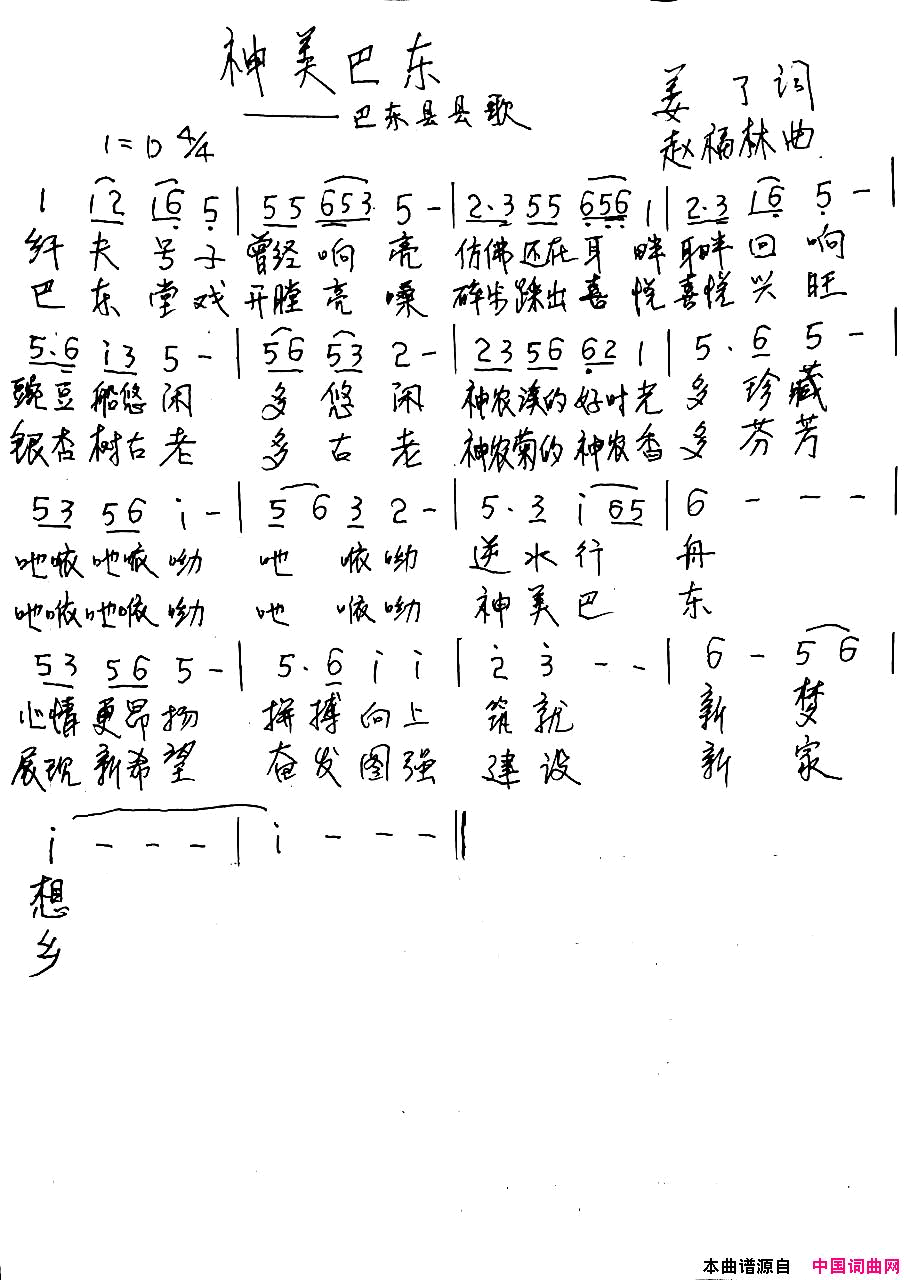 神美巴东
——巴东县县歌
姜了词
1=D 4/4
赵福林曲
1 i2 i6 5 | 55 653 5 - | 2·3 55 656 1 | 2·3 i6 5 - |
纤夫号子曾经响亮 仿佛还在耳畔耳畔回响
巴东堂戏开膛亮嗓 碎步踩出喜悦喜悦兴旺
5·6 i3 5 - | 56 53 2 - | 23 56 62 1 | 5· 6 5 - |
豌豆船悠闲 多悠闲 神农溪的好时光多珍藏
银杏树古老 多古老 神农菊的神农香多芬芳
53 56 i - | 5 6 3 2 - | 5· 3 i 65 | 6 - - - |
吔嗾吔嗾呦 吔嗾呦 逆水行舟
吔嗾吔嗾呦 吔嗾呦 神美巴东
53 56 5 - | 5· 6 i i | 2 3 - - | 6 - 5 6 |
心情更昂扬 拼搏向上 筑就 新梦
展现新希望 奋发图强 建设 新家
i - - - | i - - - ‖
想
乡
本曲谱源自 中国词曲网